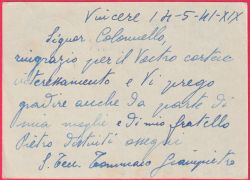 Vincere 14-5-41-XIX
Signor Colonnello,
ringrazio per il Vostro cortese
interessamento e Vi prego
gradire anche da parte di
mia moglie e di mio fratello
Pietro distinti ossequi
S. Ten. Tommaso Giampietro